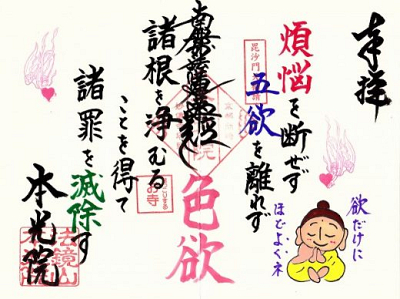 奉拝
煩悩を断ぜず
五欲を離れず
諸根を浄むる
ことを得て
諸罪を滅除す
本光院
色欲
欲だけに
ほどよくネ
毘沙門
法鏡山